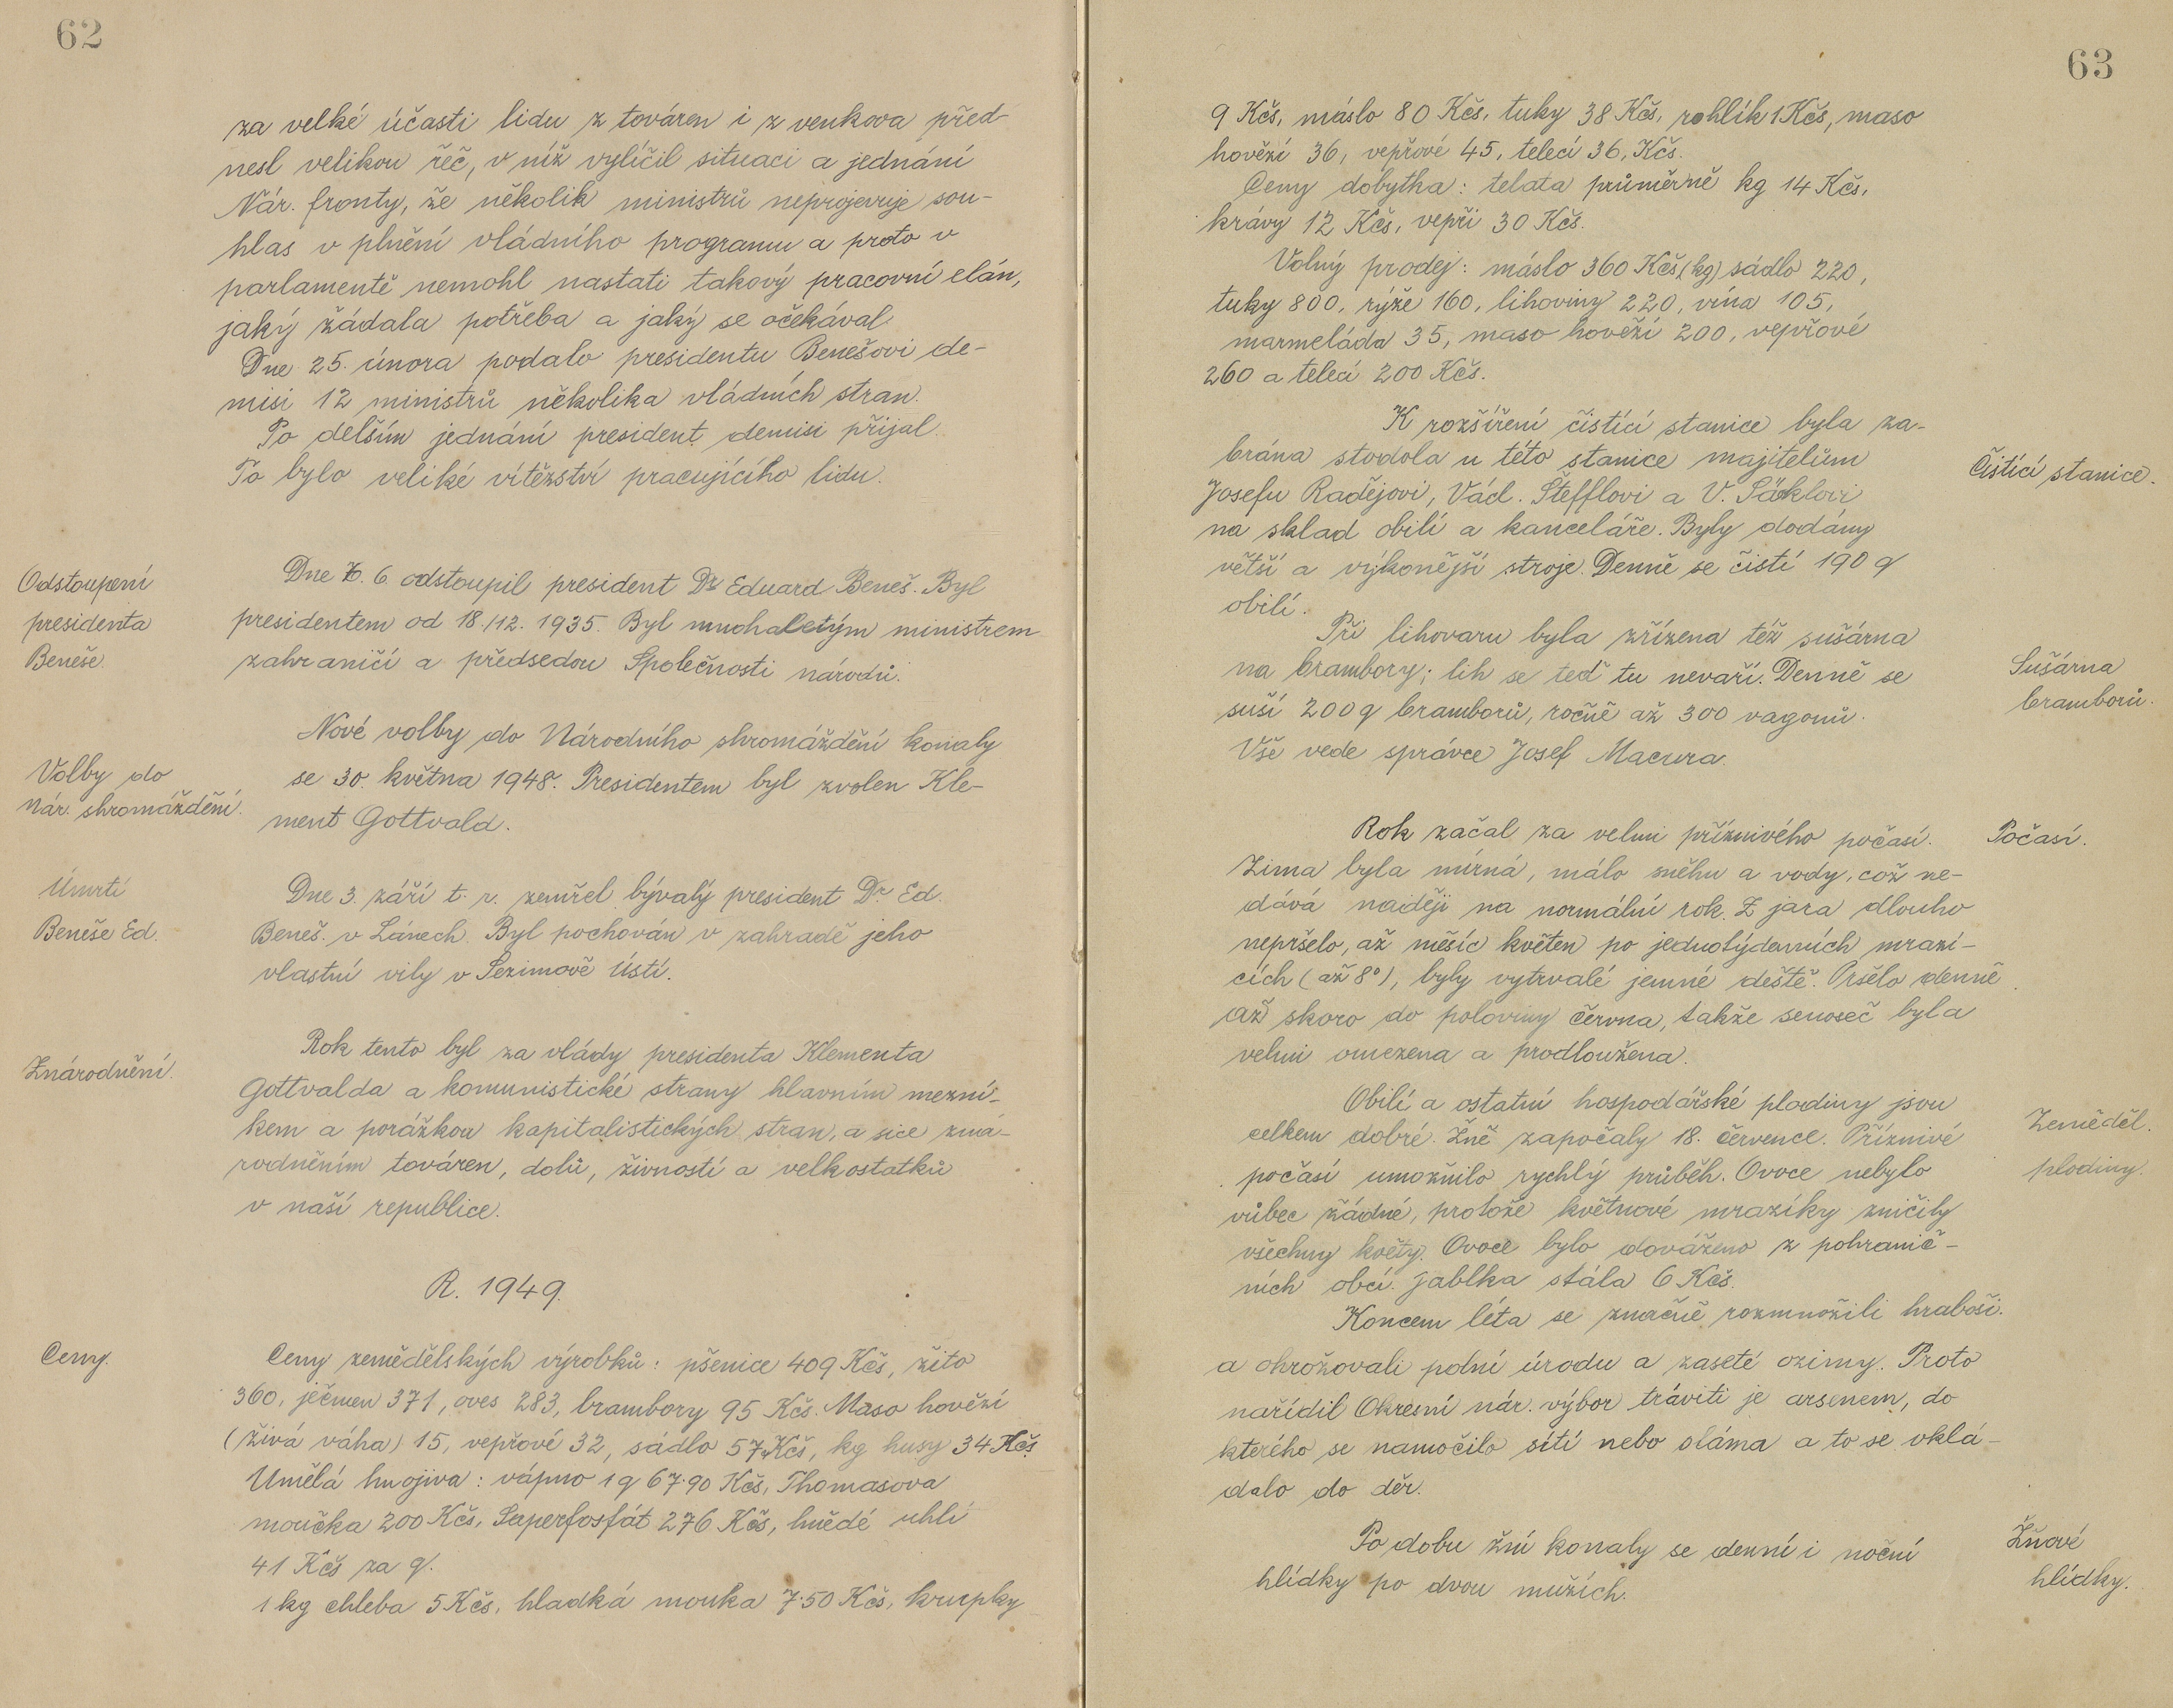 62
za velké účasti lidu z továren i z venkova před-
nesl velikou řeč, v níž vylíčil situaci a jednání
Nár. fronty, že několik ministrů neprojevuje sou-
hlas v plnění vládního programu a proto v
parlamentě nemohl nastati takový pracovní elán,
jaký žádala potřeba a jaký se očekával.
Dne 25. února podalo presidentu Benešovi de-
misi 12 ministrů několika vládních stran.
Po delším jednání president demisi přijal.
To bylo veliké vítězství pracujícího lidu.
Odstoupení
presidenta
Beneše.
Dne 7. 6. odstoupil president Dr Eduard Beneš. Byl
presidentem od 18./12. 1935. Byl mnohaletým ministrem
zahraničí a předsedou Společnosti národů.
Volby do
Nár. shromáždění.
Nové volby do Národního shromáždění konaly
se 30. května 1948. Presidentem byl zvolen Kle-
ment Gottvald.
Úmrtí
Beneše Ed.
Dne 3. září t. r. zemřel bývalý president Dr Ed.
Beneš v Lánech. Byl pochován v zahradě jeho
vlastní vily v Sezimově Ústí.
Znárodnění.
Rok tento byl za vlády presidenta Klementa
Gottvalda a komunistické strany hlavním mezní-
kem a porážkou kapitalistických stran, a sice zná-
rodněním továren, dolů, živností a velkostatků
v naší republice.
R. 1949.
Ceny.
Ceny zemědělských výrobků: pšenice 409 Kčs, žito
360, ječmen 371, oves 283, brambory 95 Kčs. Maso hovězí
(živá váha) 15, vepřové 32, sádlo 57 Kčs, kg husy 34 Kčs.
Umělá hnojiva: vápno 1 q 67·90 Kčs, Thomasova
moučka 200 Kčs, Superfosfát 276 Kčs, hnědé uhlí
41 Kčs za q.
1 kg chleba 5 Kčs, hladká mouka 7·50 Kčs, krupky
63
9 Kčs, máslo 80 Kčs, tuky 38 Kčs, rohlík 1 Kčs, maso
hovězí 36, vepřové 45, telecí 36, Kčs.
Ceny dobytka: telata průměrně kg 14 Kčs,
krávy 12 Kčs, vepři 30 Kčs.
Volný prodej: máslo 360 Kčs, (kg) sádlo 220,
tuky 800, rýže 160, lihoviny 220, vína 105,
marmeláda 35, maso hovězí 200, vepřové
260 a telecí 200 Kčs.
Čistící stanice.
K rozšíření čistící stanice byla za-
brána stodola u této stanice majitelům
Josefu Radějovi, Václ. Štefflovi a V. Säcklovi
na sklad obilí a kanceláře. Byly dodány
větší a výkonější stroje. Denně se čistí 190 q
obilí.
Sušárna
bramborů.
Při lihovaru byla zřízena též sušárna
na brambory; lih se teď tu nevaří. Denně se
suší 200 q bramborů, ročně až 300 vagonů.
Vše vede správce Josef Macura.
Počasí.
Rok začal za velmi příznivého počasí.
Zima byla mírná, málo sněhu a vody, což ne-
dává naději na normální rok. Z jara dlouho
nepršelo, až měsíc květen po jednotýdenních mrazí-
cích (až 8°), byly vytrvalé jemné deště. Pršelo denně
až skoro do poloviny června, takže senoseč byla
velmi omezena a prodloužena.
Zeměděl.
plodiny.
Obilí a ostatní hospodářské plodiny jsou
celkem dobré. Žně započaly 18. července. Příznivé
počasí umožnilo rychlý průběh. Ovoce nebylo
vůbec žádné, protože květnové mrazíky zničily
všechny květy. Ovoce bylo dováženo z pohranič-
ních obcí. Jablka stála 6 Kčs.
Koncem léta se značně rozmnožili hraboši.
a ohrožovali polní úrodu a zaseté ozimy. Proto
nařídil Okresní nár. výbor tráviti je arsenem, do
kterého se namočilo sítí nebo sláma a to se vklá-
dalo do děr.
Žňové
hlídky.
Po dobu žní konaly se denní i noční
hlídky po dvou mužích.